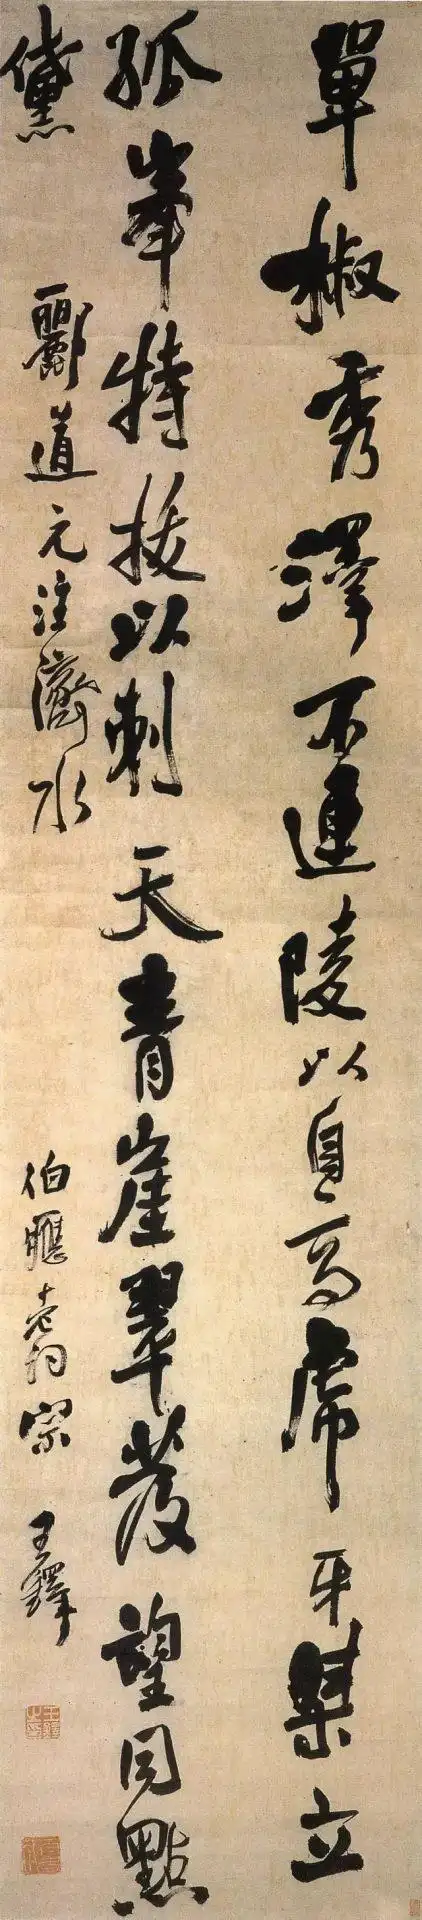 單椒秀澤不連陵以自高虎牙桀立
孤峯特拔以刺天青崖翠發望同點
黛 酈道元注濟水 伯應老詞宗 王鐸